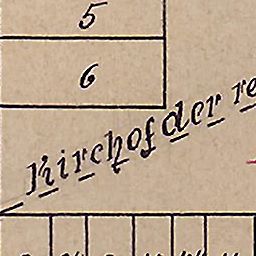 5
6
Kirchof der re